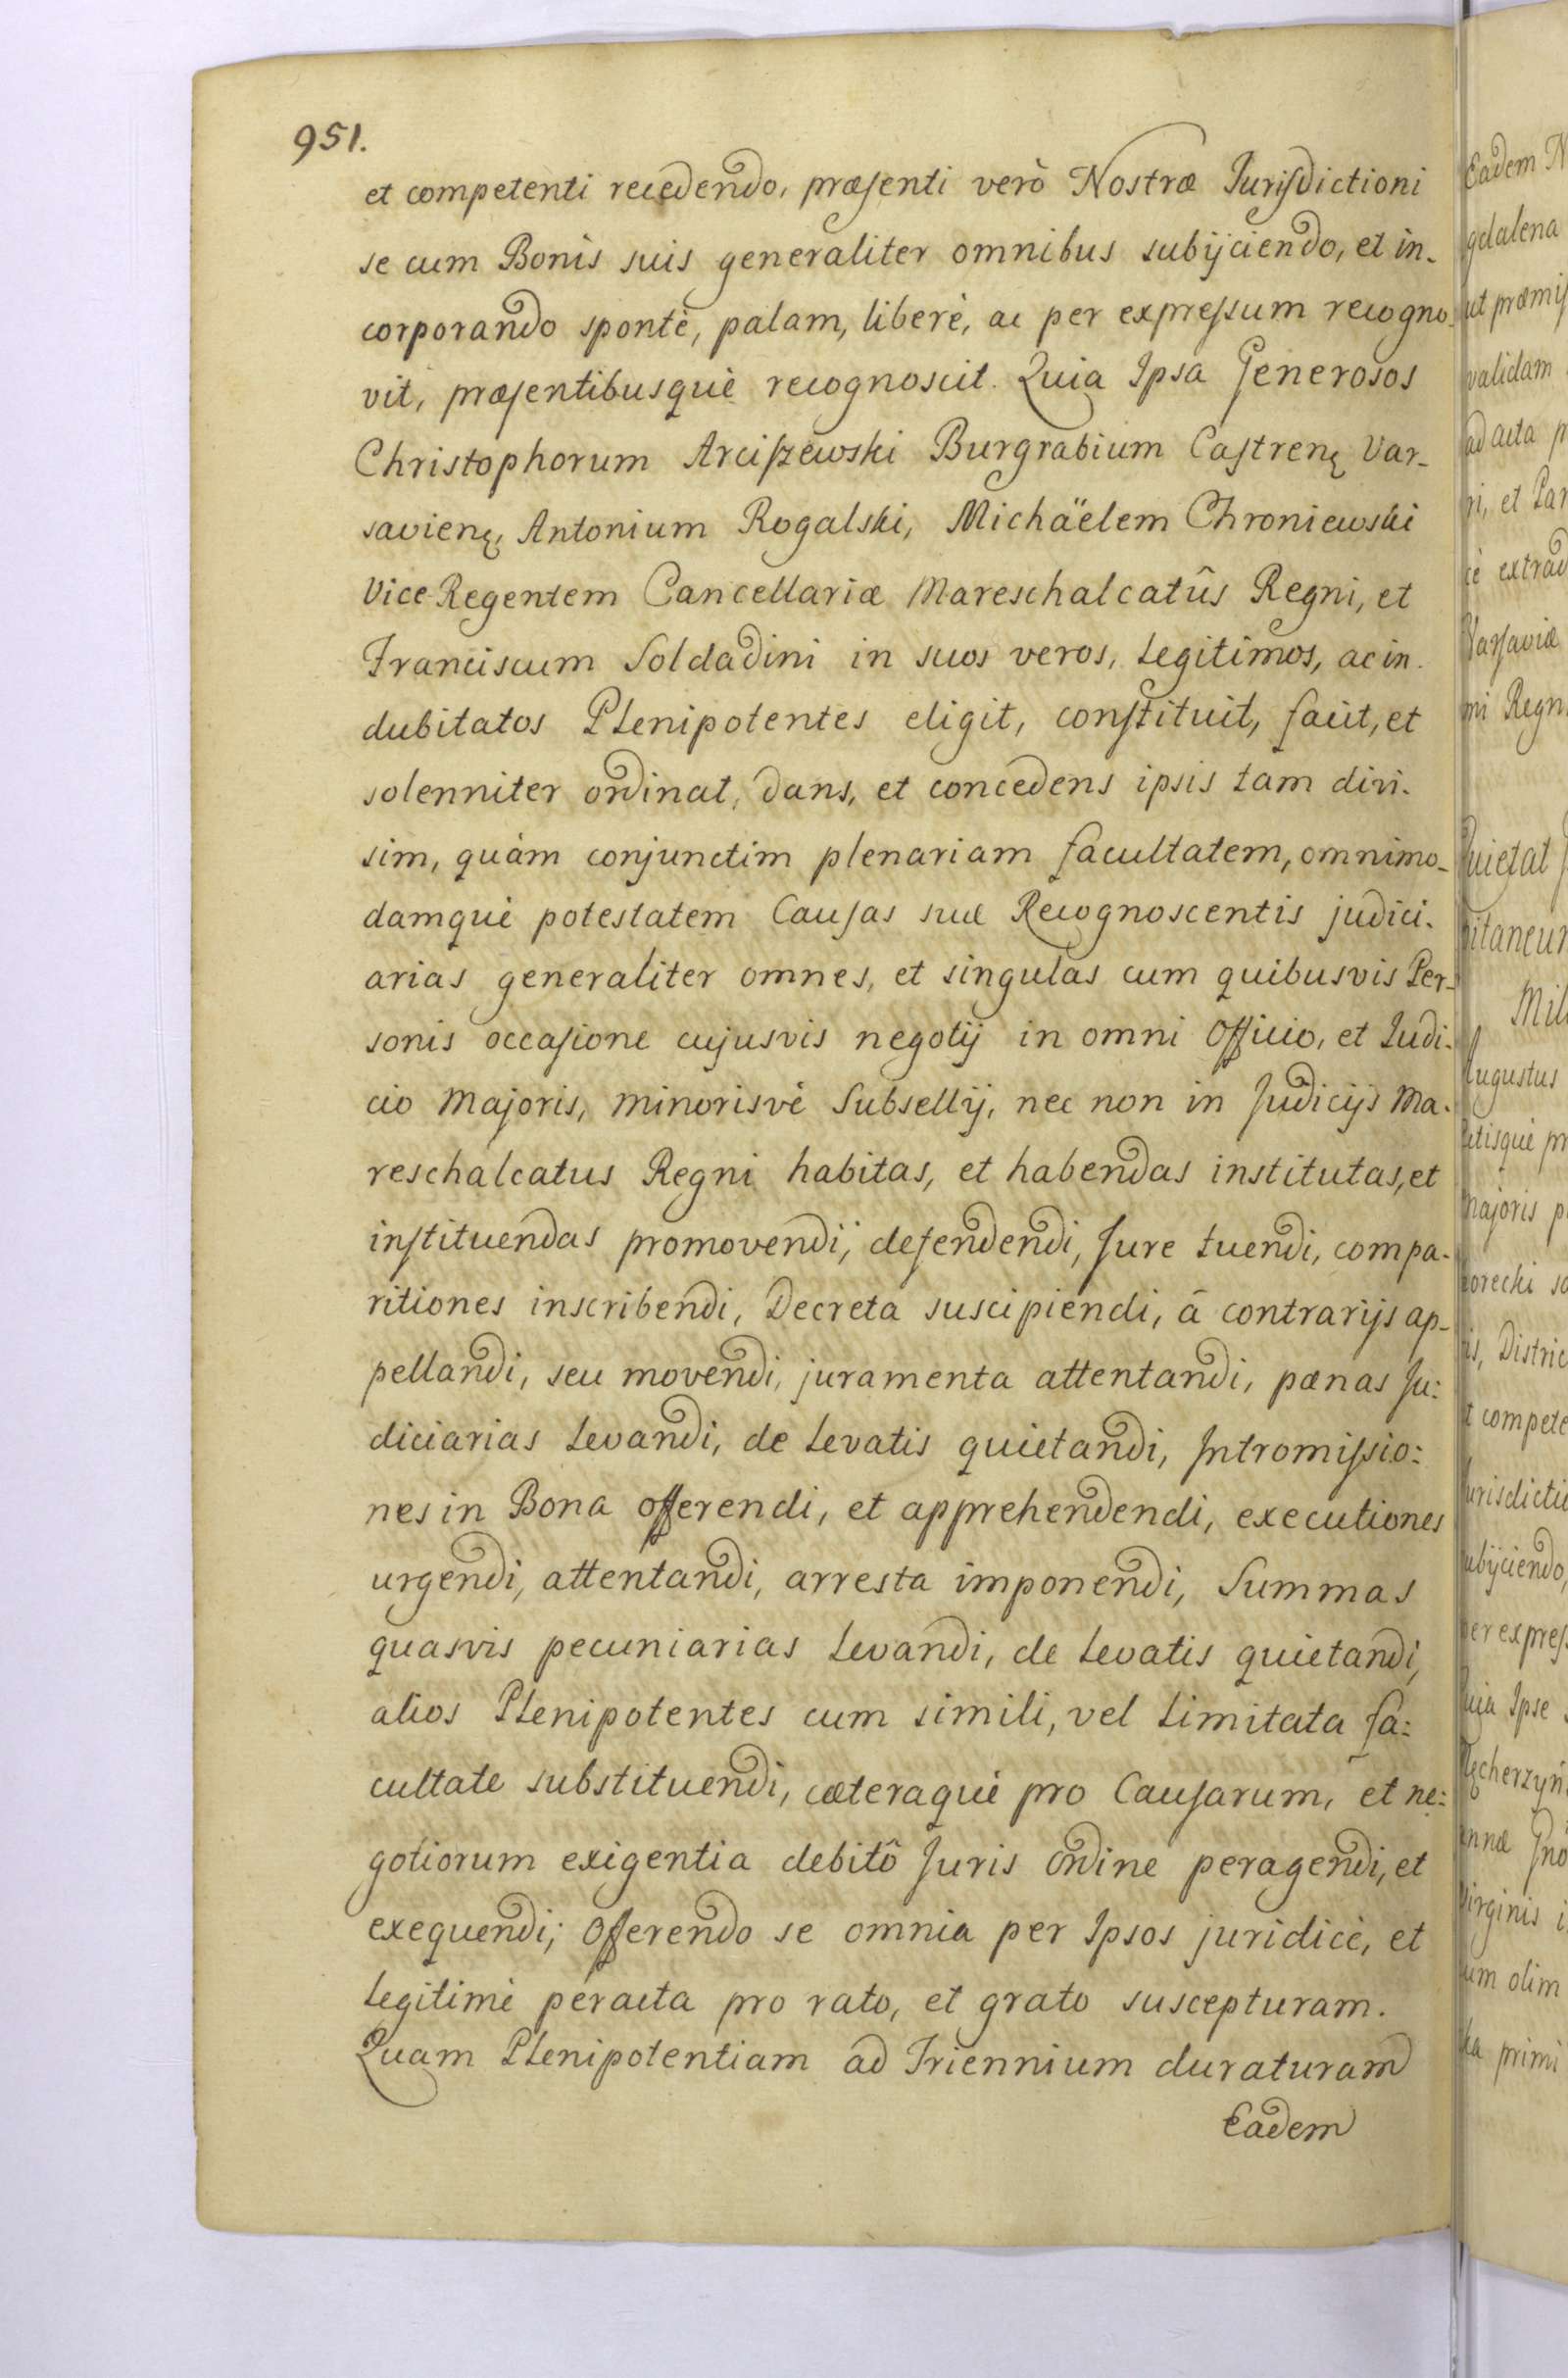 951.
et competenti recedendo, præsenti verò Nostræ Jurisdictioni
se cum Bonis suis generaliter omnibus subijciendo, et in-
corporando spontè, palam, liberè, ac per expressum recogno-
vit, præsentibusquè recognoscit. Quia Ipsa Generosos
Christophorum Arciszewski Burgrabium Castrenę Var-
savienę, Antonium Rogalski, Michäelem Chroniewski
Vice-Regentem Cancellariæ Mareschalcatûs Regni, et
Franciscum Soldadini in suos veros, legitimos, ac in-
dubitatos Plenipotentes eligit, constituit, facit, et
solenniter ordinat, dans, et concedens ipsis tam divi-
sim, quàm conjunctim plenariam facultatem, omnimo-
damquè potestatem Causas suæ Recognoscentis judici-
arias generaliter omnes, et singulas cum quibusvis Per-
sonis occasione cujusvis negotij in omni Officio, et Judi-
cio Majoris, minorisvè Subsellij, nec non in Judicijs Ma-
reschalcatus Regni habitas, et habendas institutas, et
instituendas promovendi, defendendi, Jure tuendi, compa-
ritiones inscribendi, Decreta suscipiendi, â contrarijs ap-
pellandi, seu movendi, juramenta attentandi, pænas Ju:
diciarias levandi, de levatis quietandi, Intromissio:
nes in Bona offerendi, et apprehendendi, executiones
urgendi, attentandi, arresta imponendi, Summas
quasvis pecuniarias levandi, de levatis quietandi,
alios Plenipotentes cum simili, vel limitata fa:
cultate substituendi, cæteraquè pro Causarum, et ne:
gotiorum exigentia debitô Juris ordine peragendi, et
exequendi; Offerendo se omnia per Ipsos juridicè, et
legitimè peracta pro rato, et grato suscepturam.
Quam Plenipotentiam ad Triennium duraturam
Eadem
Eadem N
gdalena
validam
ad acta p
et Par
Varsaviæ
Regn
Mil
Augustus
majoris p
Distric
compete
subijciendo,
per expres
Quia Ipse
Virginis i
olim
primi